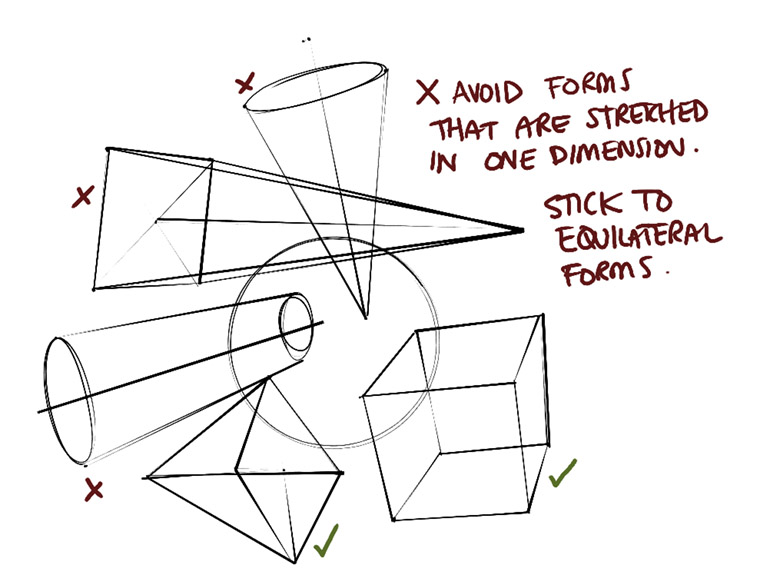 X AVOID FORMS
THAT ARE STRETCHED
IN ONE DIMENSION.
STICK TO
EQUILATERAL
FORMS.